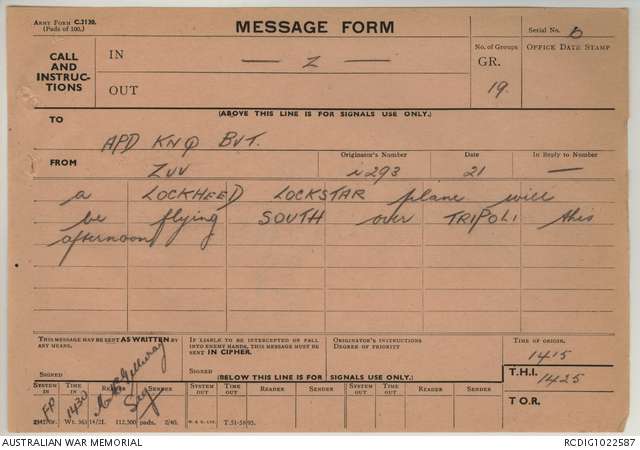 ARMY FORM C.2130.
(Pads of 100.)
MESSAGE FORM
Serial No. D
CALL AND INSTRUC-TIONS
IN
— Z —
OUT
No. of Groups
GR.
19.
OFFICE DATE STAMP
(ABOVE THIS LINE IS FOR SIGNALS USE ONLY.)
TO
APD KNQ BVT.
FROM
ZUV
Originator's Number
N293
Date
21
In Reply to Number
—
a LOCKHEED LOCKSTAR plane will
be flying SOUTH over TRIPOLI this
afternoon
THIS MESSAGE MAY BE SENT AS WRITTEN BY
ANY MEANS.
SIGNED
IF LIABLE TO BE INTERCEPTED OR FALL
INTO ENEMY HANDS, THIS MESSAGE MUST BE
SENT IN CIPHER.
SIGNED
ORIGINATOR'S INSTRUCTIONS
DEGREE OF PRIORITY
TIME OF ORIGIN.
1415
T.H.I.
1425
T O.R.
(BELOW THIS LINE IS FOR SIGNALS USE ONLY.)
SYSTEM IN
FP
TIME IN
1430
READER
SENDER
Sig
SYSTEM OUT
TIME OUT
READER
SENDER
SYSTEM OUT
TIME OUT
READER
SENDER
SYSTEM OUT
TIME OUT
READER
SENDER
112,500 pads. 2/40.
T.51-5893.
AUSTRALIAN WAR MEMORIAL
RCDIG1022587